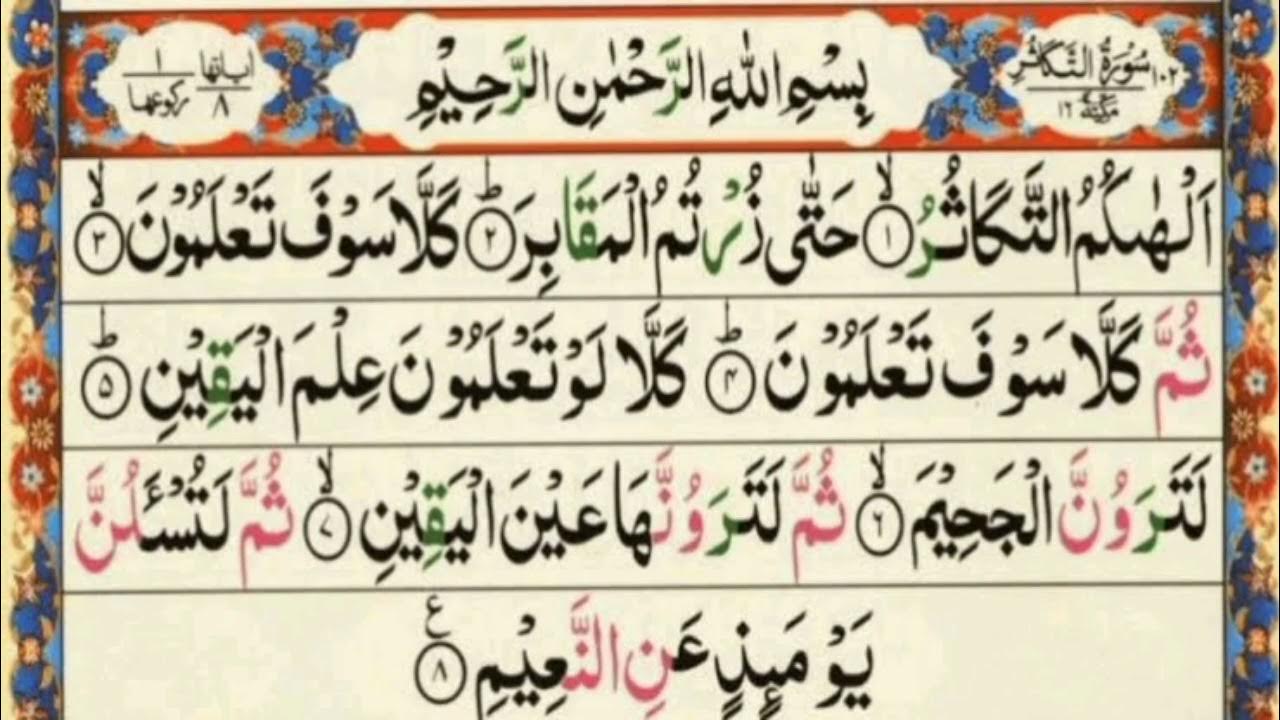 سُوْرَةُ التَّكَاثُرِ ١٠٢
مَكِّيَّةٌ ١٦
بِسْمِ اللّٰهِ الرَّحْمٰنِ الرَّحِيْمِ
اٰيَاتُهَا ٨
رُكُوْعُهَا ١
اَلْهٰىكُمُ التَّكَاثُرُ ۙ﴿۱﴾ حَتّٰى زُرْتُمُ الْمَقَابِرَ ؕ﴿۲﴾ كَلَّا سَوْفَ تَعْلَمُوْنَ ۙ﴿۳﴾
ثُمَّ كَلَّا سَوْفَ تَعْلَمُوْنَ ؕ﴿۴﴾ كَلَّا لَوْ تَعْلَمُوْنَ عِلْمَ الْيَقِيْنِ ؕ﴿۵﴾
لَتَرَوُنَّ الْجَحِيْمَ ۙ﴿۶﴾ ثُمَّ لَتَرَوُنَّهَا عَيْنَ الْيَقِيْنِ ۙ﴿۷﴾ ثُمَّ لَتُسْـَٔلُنَّ
يَوْمَىِٕذٍ عَنِ النَّعِيْمِ ﴿۸﴾ ع